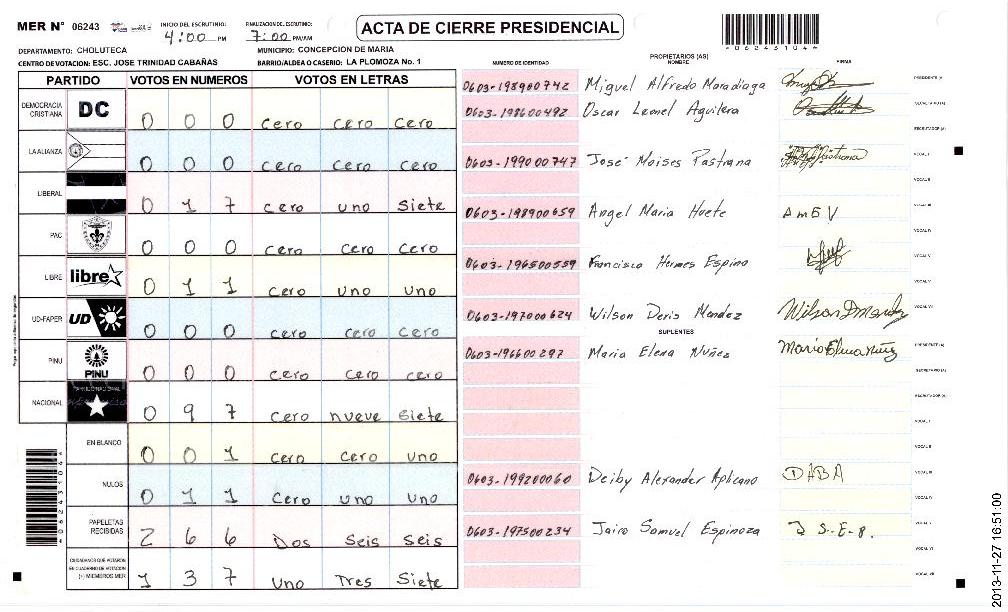 MER N° 06243 INICIO DEL ESCRUTINIO: 4:00 PM FINALIZACION DEL ESCRUTINIO: 7:00 PM/AM ACTA DE CIERRE PRESIDENCIAL
062431044
DEPARTAMENTO: CHOLUTECA MUNICIPIO: CONCEPCION DE MARIA
CENTRO DE VOTACION: ESC. JOSE TRINIDAD CABAÑAS BARRIO/ALDEA O CASERIO: LA PLOMOZA No. 1
PARTIDO VOTOS EN NUMEROS VOTOS EN LETRAS
DEMOCRACIA CRISTIANA DC 0 0 0 cero cero cero
LA ALIANZA 0 0 0 cero cero cero
LIBERAL 0 1 7 cero uno siete
PAC 0 0 0 cero cero cero
LIBRE libre 0 1 1 cero uno uno
UD-FAPER UD 0 0 0 cero cero cero
PINU PINU 0 0 0 cero cero cero
NACIONAL 0 9 7 cero nueve siete
EN BLANCO 0 0 1 cero cero uno
NULOS 0 1 1 cero uno uno
PAPELETAS RECIBIDAS 2 6 6 Dos Seis Seis
CIUDADANOS QUE VOTARON EN CUADERNO DE VOTACION (+) MIEMBROS MER 1 3 7 uno Tres Siete
NUMERO DE IDENTIDAD PROPIETARIOS (AS) NOMBRE FIRMA
0603-198900742 Miguel Alfredo Maradiaga PRESIDENTE (A)
0603-198600492 Oscar Leonel Aguilera SECRETARIO (A)
ESCRUTADOR (A)
0603-199000747 José Moises Pastrana VOCAL I
VOCAL II
0603-198900659 Angel Maria Huete AMEV VOCAL III
VOCAL IV
0603-196500559 Francisco Hermes Espino VOCAL V
VOCAL VI
0603-197000624 Wilson Deris Mendez Wilson D Mendez VOCAL VII
SUPLENTES
0603-196600297 Maria Elena Nuñez Maria Elena Nuñez PRESIDENTE (A)
SECRETARIO (A)
ESCRUTADOR (A)
VOCAL I
VOCAL II
0603-199200060 Deiby Alexander Aplicano DABA VOCAL III
VOCAL IV
0603-197500234 Jairo Samuel Espinoza J S-E-8. VOCAL V
VOCAL VI
VOCAL VII
2013-11-27 16:51:00